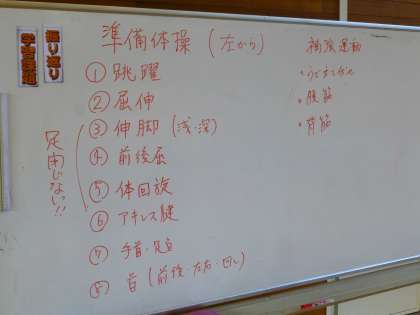 振り返り
学習課題
準備体操（左から）
① 跳躍
② 屈伸
③ 伸脚（浅・深）
④ 前後屈
⑤ 体回旋
⑥ アキレス腱
⑦ 手首・足首
⑧ 首（前後・左右・回し）
足閉じない!!
補強運動
・うでたてふせ
・腹筋
・背筋